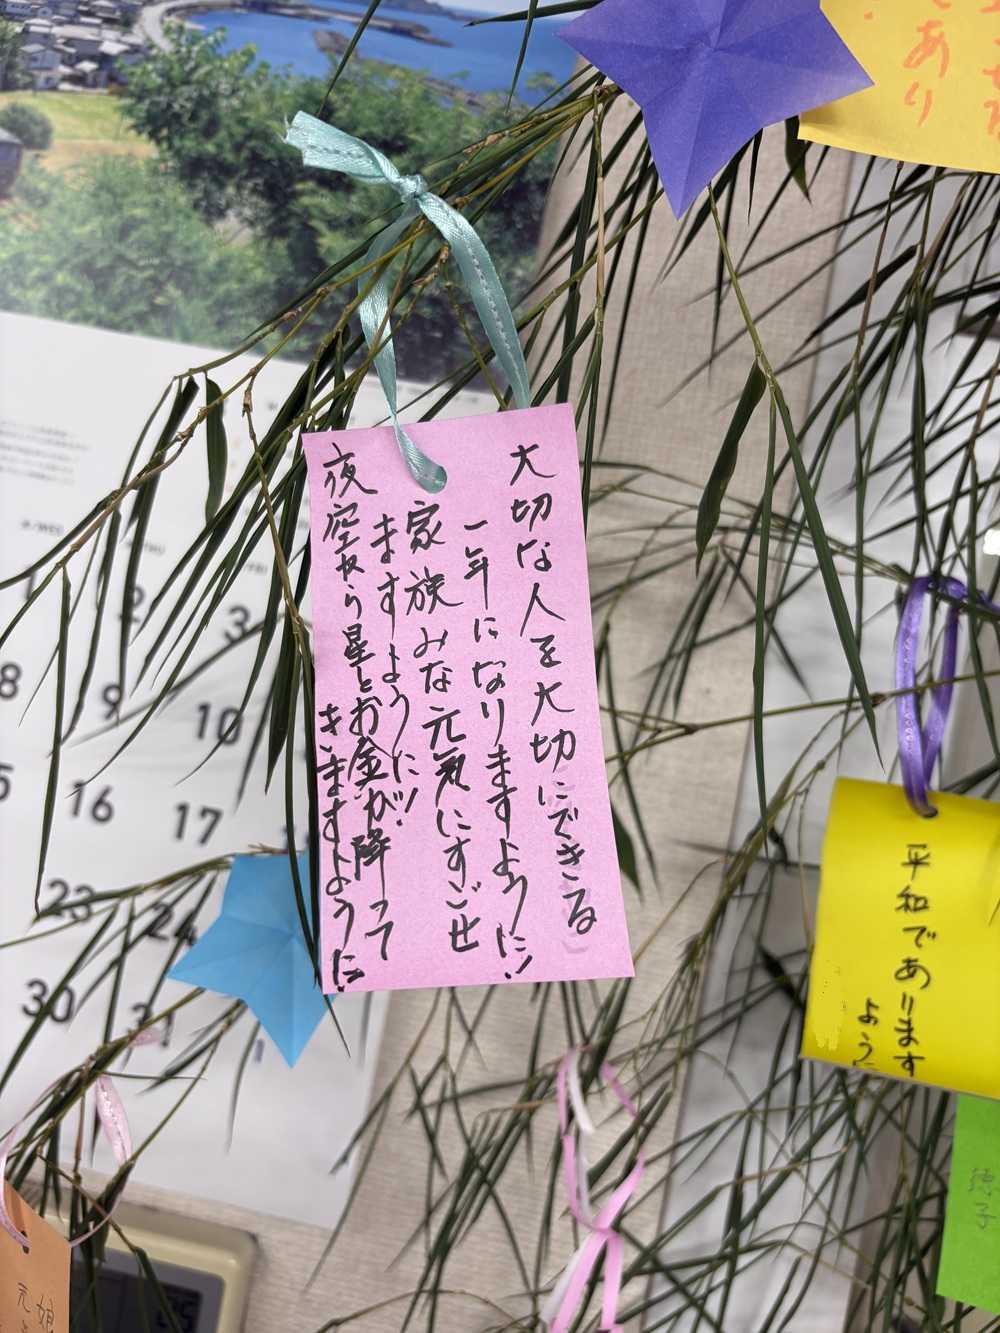 大切な人を大切にできる
一年になりますように!
家族みな元気にすごせ
ますように!!
夜空から星とお金が降って
きますように!
平和であります
ように
あり
徳子
娘
元
1
2
3
8
9
10
16
17
23
24
30
31